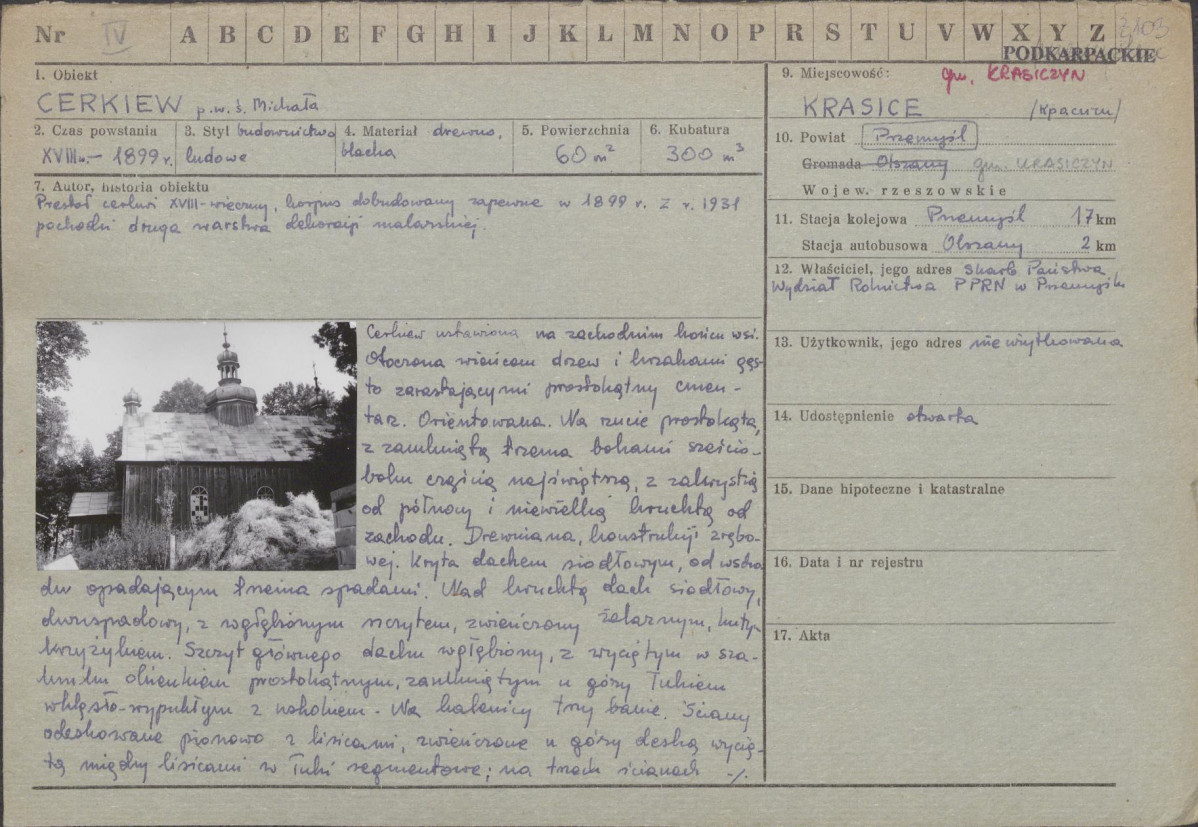 Nr IV A B C D E F G H I J K L M N O P R S T U V W X Y Z 3103
PODKARPACKIE
1. Obiekt
CERKIEW p.w. ś. Michała
2. Czas powstania
XVIII w. – 1899 r.
3. Styl budownictwo
ludowe
4. Materiał drewno,
blacha
5. Powierzchnia
60 m²
6. Kubatura
300 m³
7. Autor, historia obiektu
Prestoł cerkwi XVIII-wieczny, korpus dobudowany zapewne w 1899 r. Z r. 1931
pochodzi druga warstwa dekoracji malarskiej.
Cerkiew ustawiona na zachodnim końcu wsi.
Otoczona wieńcem drzew i krzakami gęs-
to zarastającymi prostokątny cmen-
tarz. Orientowana. Na rzucie prostokąta,
z zamkniętą trzema bokami sześcio-
boku częścią najświętszą, z zakrystią
od północy i niewielką kruchtą od
zachodu. Drewniana, konstrukcji zrębo-
wej. Kryta dachem siodłowym, od wscho
du opadającym trzema spadami. Nad kruchtą dach siodłowy,
dwuspadowy, z wgłębionym szczytem, zwieńczony żelaznym, kutym
krzyżykiem. Szczyt głównego dachu wgłębiony, z wyciętym w sza-
lunku okienkiem prostokątnym, zamkniętym u góry łukiem
wklęsło-wypukłym z uskokiem. Na kalenicy trzy banie. Ściany
odeskowane pionowo z lisicami, zwieńczone u góry deską wycię-
tą między lisicami w łuki segmentowe; na trzech ścianach ./.
9. Miejscowość:
gm. KRASICZYN
KRASICE
10. Powiat Przemyśl
Gromada Olszany gm. KRASICZYN
Wojew. rzeszowskie
11. Stacja kolejowa Przemyśl 17 km
Stacja autobusowa Olszany 2 km
12. Właściciel, jego adres Skarb Państwa
Wydział Rolnictwa PPRN w Przemyślu
13. Użytkownik, jego adres nieużytkowana
14. Udostępnienie otwarta
15. Dane hipoteczne i katastralne
16. Data i nr rejestru
17. Akta